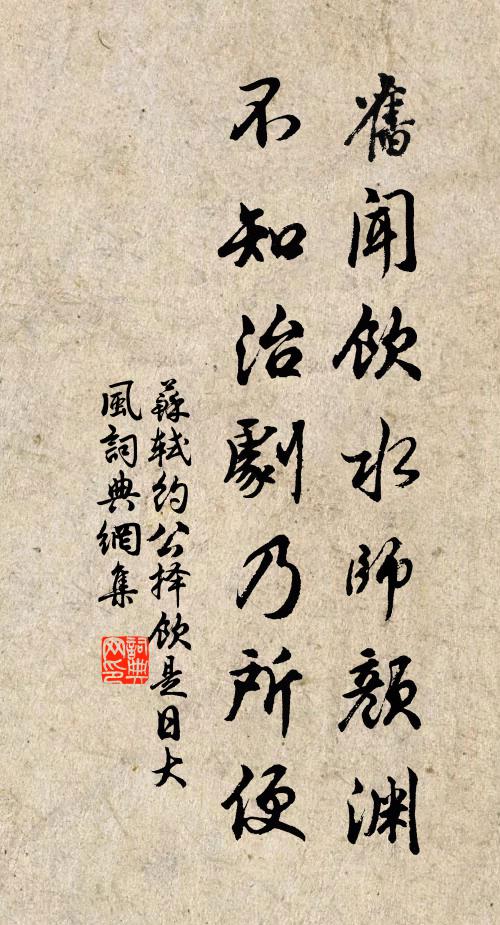 舊聞飲水師顏淵
不知治劇乃所便
蘇軾約公择飲是日大
風詞典網集
詞典
网印